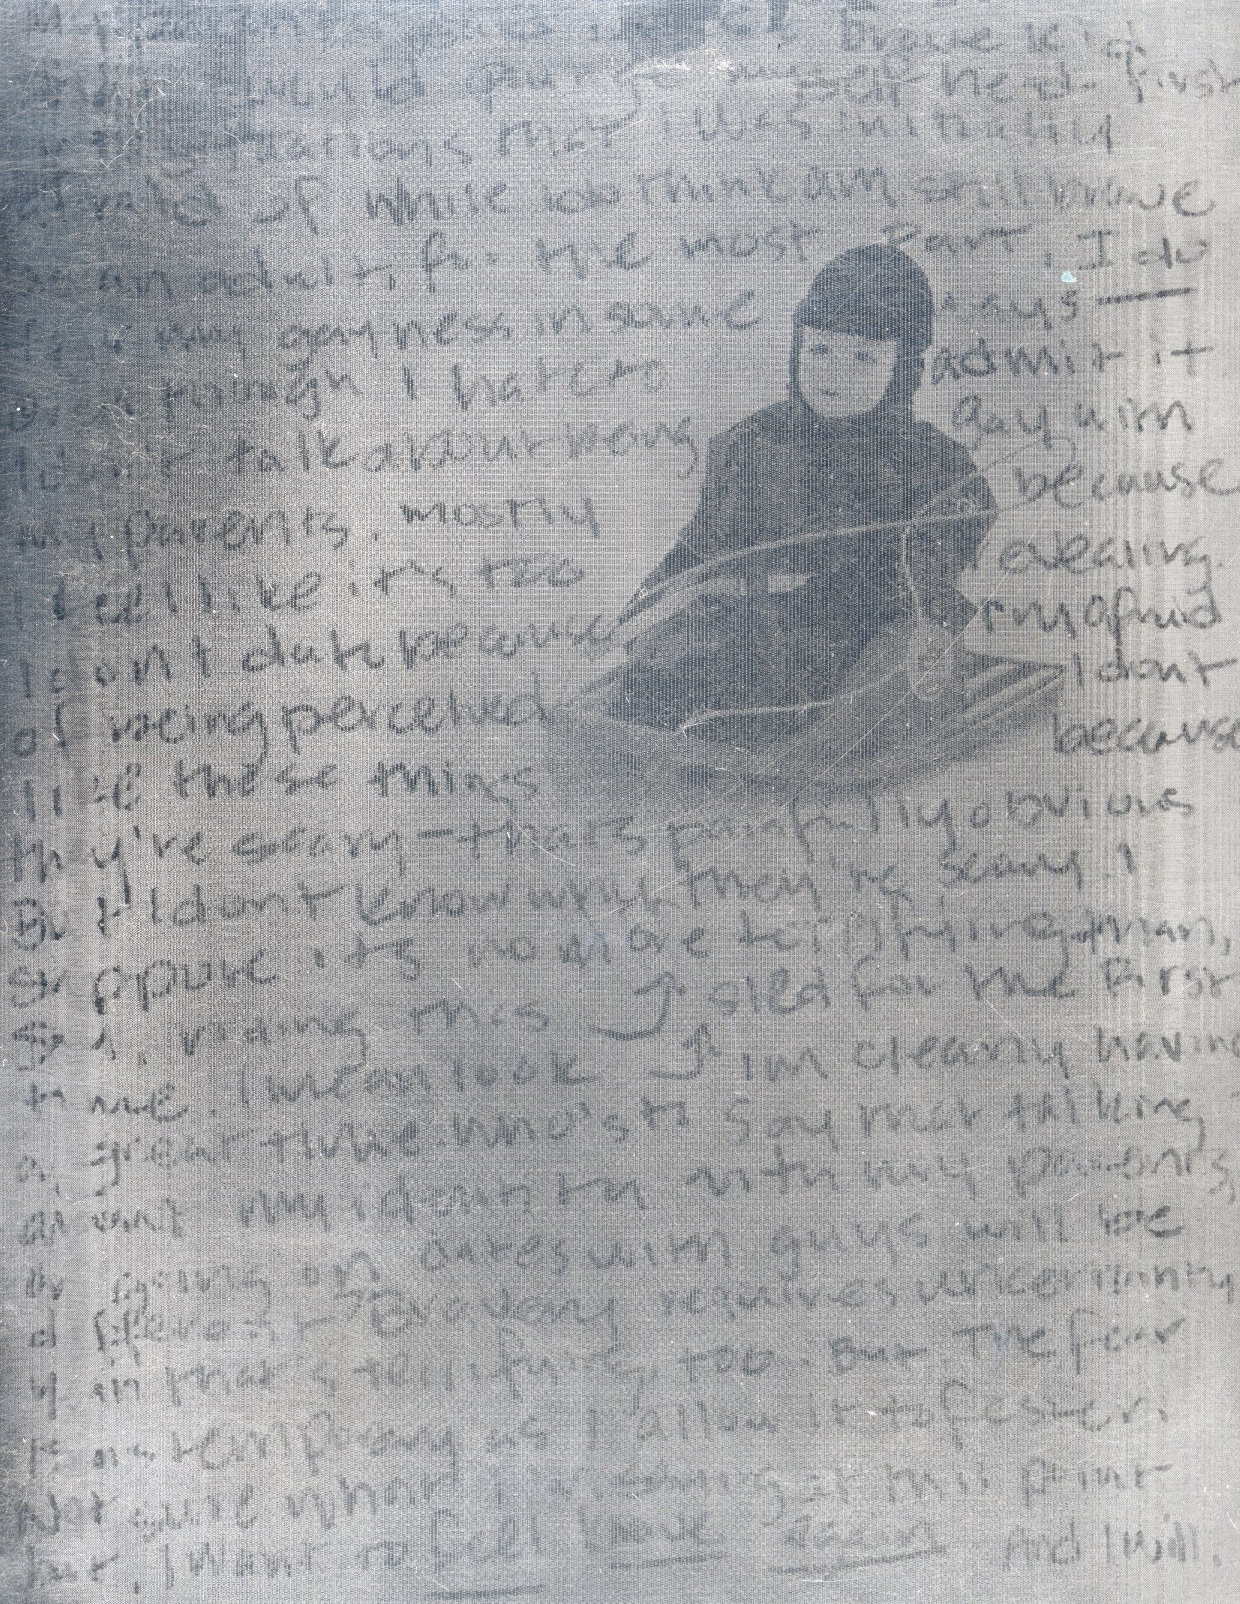 brave kid
would plunge myself head first
situations that I was initially
afraid of while I do think am still brave
as an adult, for the most part, I do
my gayness in some ways —
even though I hate to admit it
I don't talk about being gay with
my parents. mostly because
I feel like it's too revealing.
I don't date because I'm afraid
of being perceived I dont
like these things because
they're scary - thats painfully obvious
But I dont know why they're scary. I
suppose its no more terrifying than,
riding this sled for the first
time. I mean look im clearly having
a great time. who's to say that talking
about my identity with my parents,
or going on dates with guys will be
different. Bravery requires uncertainty
and that's terrifying too. But The fear
is as temporary as I allow it to fester.
Not sure what I'm at this point
but, I want to feel brave again And I will.